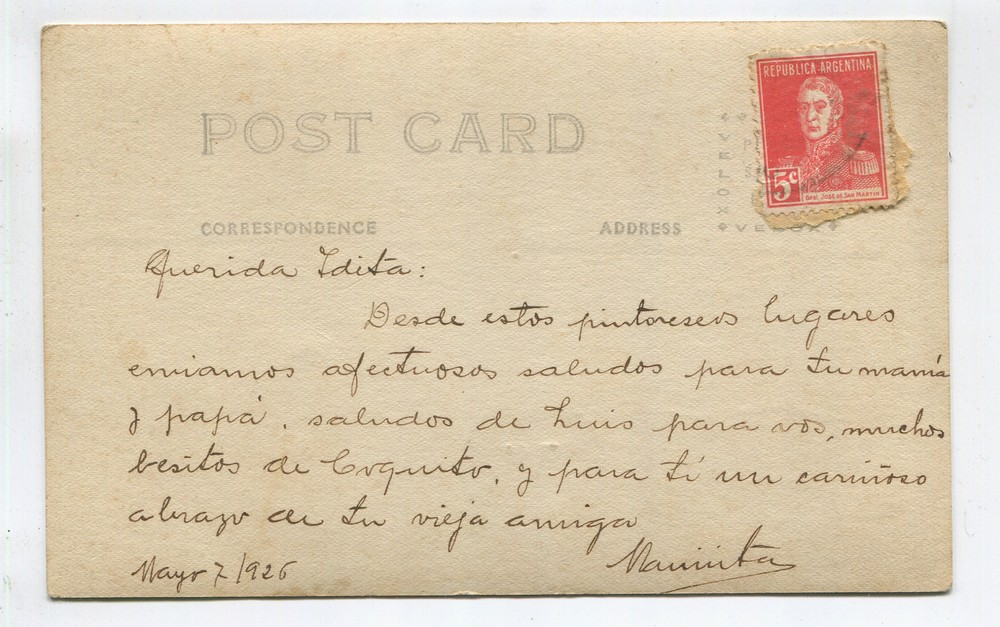 REPUBLICA ARGENTINA
5c
Gral. José de San Martín
POST CARD
CORRESPONDENCE
ADDRESS
VELOX
Querida Idita:
Desde estos pintorescos lugares
enviamos afectuosos saludos para tu mamá
y papá, saludos de Luis para vos, muchos
besitos de Coquito, y para ti un cariñoso
abrazo de tu vieja amiga
Mayo 7/926